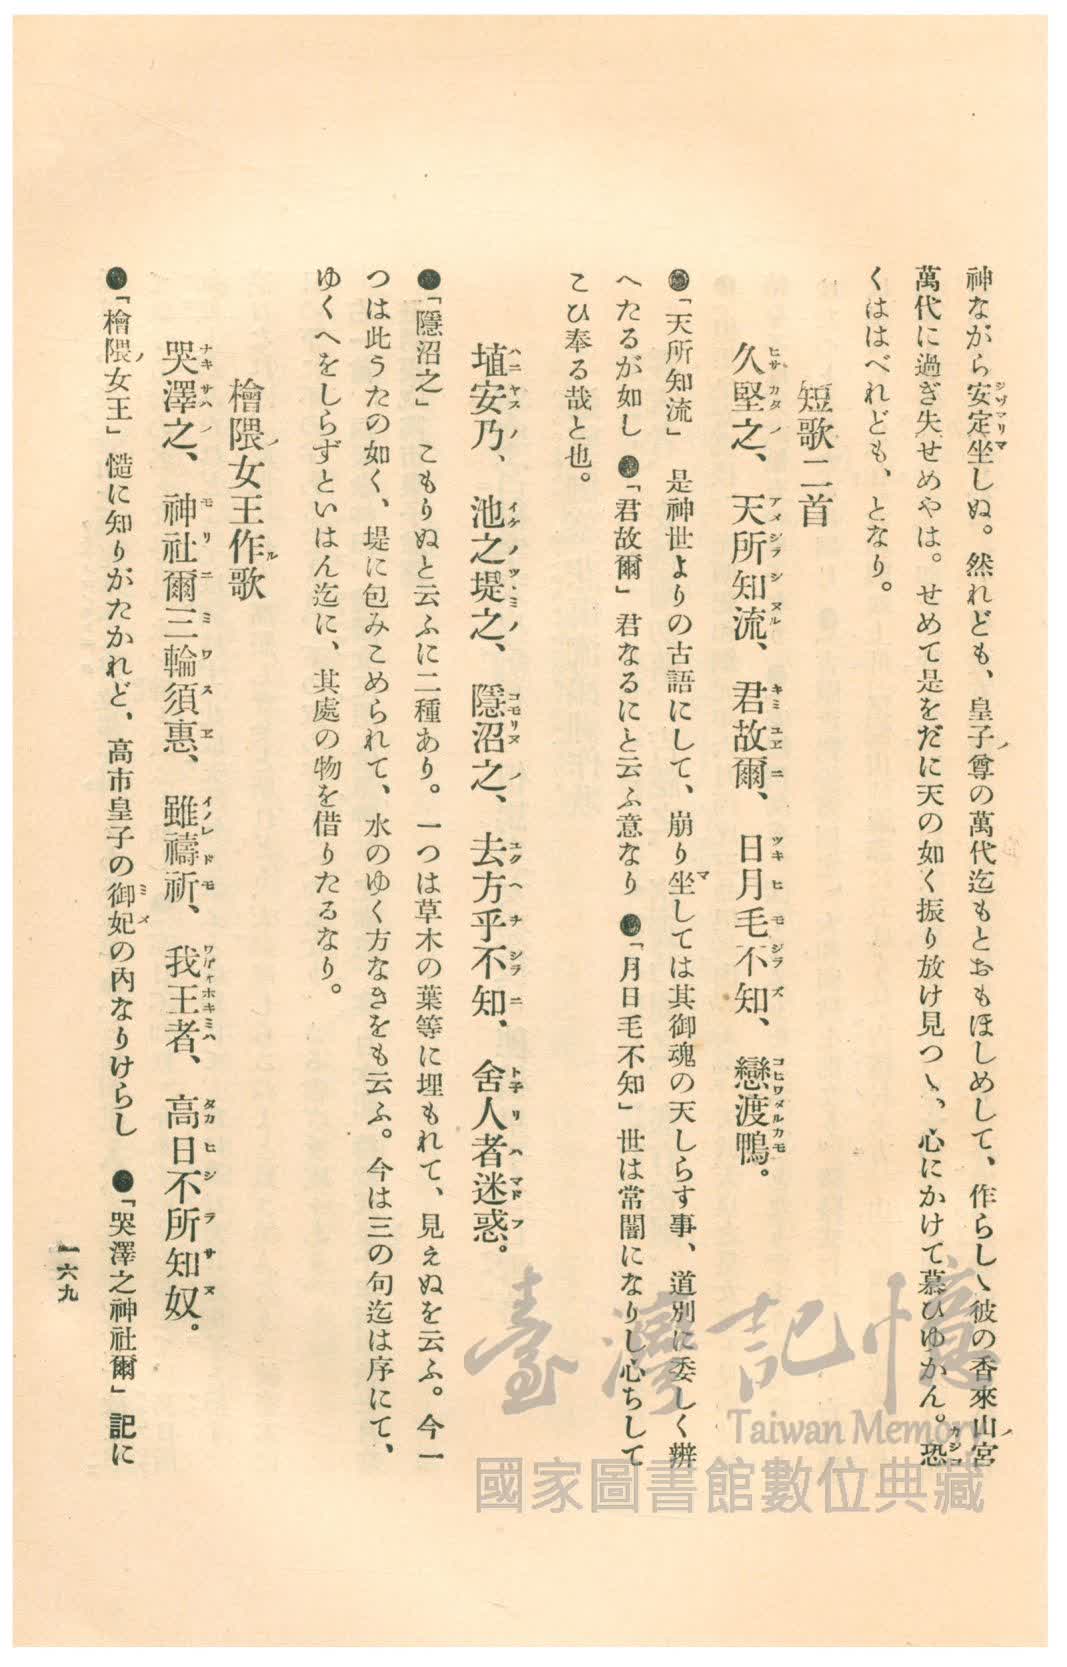 神ながら安定坐しぬ。然れども、皇子ノ尊の萬代迄もとおもほしめして、作らしゝ彼の香來山ノ宮
萬代に過ぎ失せめやは。せめて是をだに天の如く振り放け見つゝ、心にかけて慕ひゆかん。恐
くはゝべれども、となり。
短歌二首
久堅之、天所知流、君故爾、日月毛不知、戀渡鴨。
●「天所知流」 是神世よりの古語にして、崩り坐しては其御魂の天しらす事、道別に委しく辨
へたるが如し ●「君故爾」君なるにと云ふ意なり ●「月日毛不知」世は常闇になりし心ちして
こひ奉る哉と也。
埴安乃、池之堤之、隱沼之、去方乎不知、舍人者迷惑。
●「隱沼之」 こもりぬと云ふに二種あり。一つは草木の葉等に埋もれて、見えぬを云ふ。今一
つは此うたの如く、堤に包みこめられて、水のゆく方なきをも云ふ。今は三の句迄は序にて、
ゆくへをしらずといはん迄に、其處の物を借りたるなり。
檜隈ノ女王作ル歌
哭澤之、神社爾三輪須惠、雖禱祈、我王者、高日不所知奴。
●「檜隈ノ女王」慥に知りがたかれど、高市皇子の御妃の內なりけらし ●「哭澤之神社爾」記に
一六九
臺灣記憶
Taiwan Memory
國家圖書館數位典藏